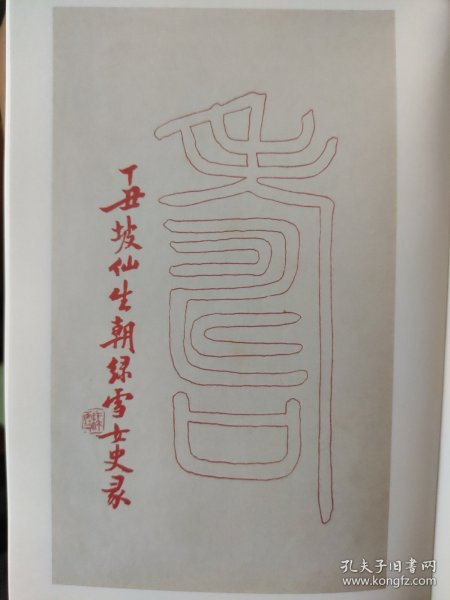 壽
丁丑坡仙生朝緑雪女史
孔夫子旧书网
www.kongfz.com